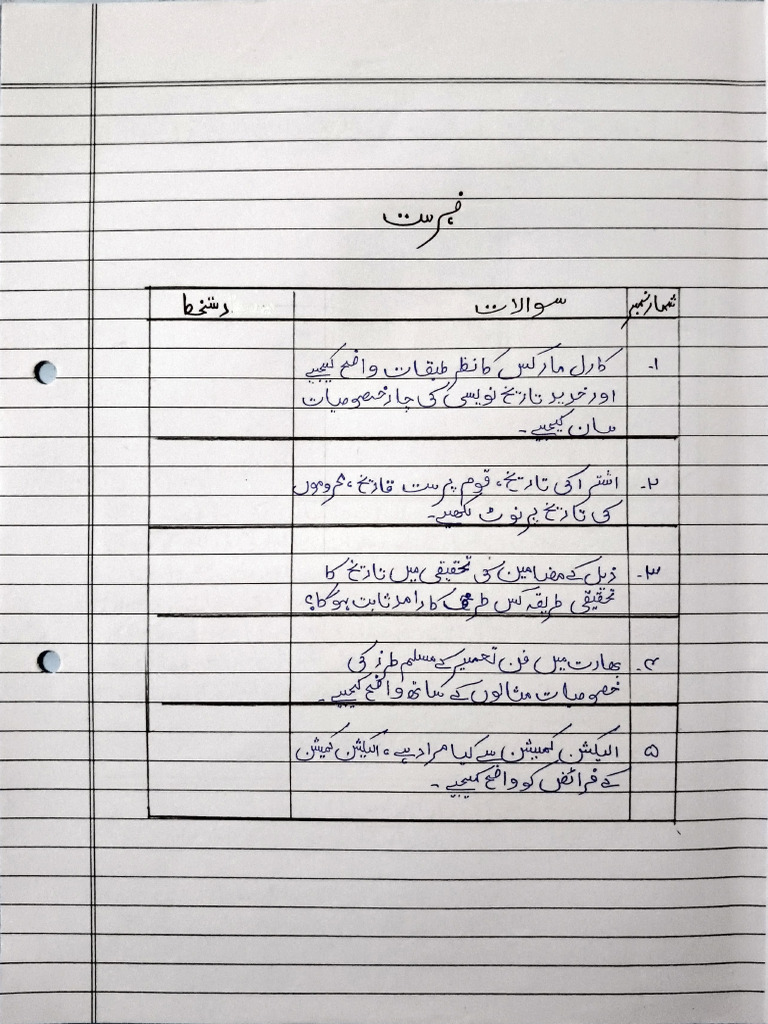 فہرست
شمار نمبر سوالات دستخط
۱۔ کارل مارکس کا نظر طبقات واضح کیجیے
اور جدید تاریخ نویسی کی چار خصوصیات
بیان کیجیے۔
۲۔ اشتراکی تاریخ، قوم پرست تاریخ، محروموں
کی تاریخ پر نوٹ لکھیے۔
۳۔ ذیل کے مضامین کی تحقیقی میں تاریخ کا
تحقیقی طریقہ کس طرح کارآمد ثابت ہوگا؟
۴۔ بھارت میں فن تعمیر کے مسلم طرز کی
خصوصیات مثالوں کے ساتھ واضح کیجیے۔
۵ الیکشن کمیشن سے کیا مراد ہے، الیکشن کمیشن
کے فرائض کو واضح کیجیے۔